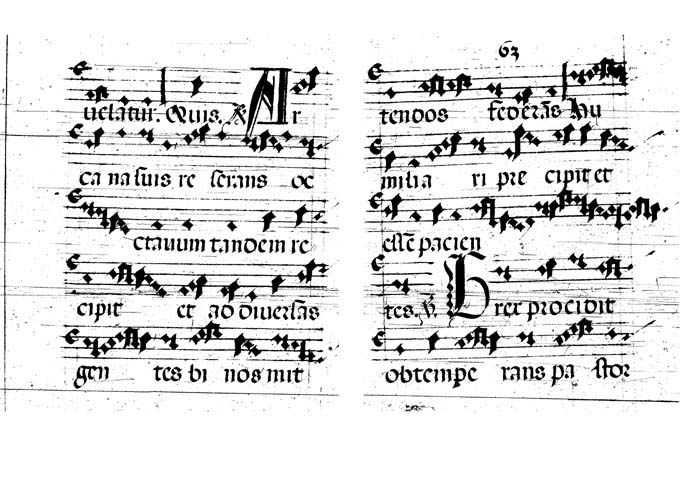 uelatur. Quis. ℟ Ar
ca na suis re serans oc
ctauum tandem re
cipit et ad diuersas
gen tes bi nos mit
63
tendos federãs hu
milia ri pre cipit et
essẽ pacien
tes. ℣. Grex procidit
obtempe rans pa stor